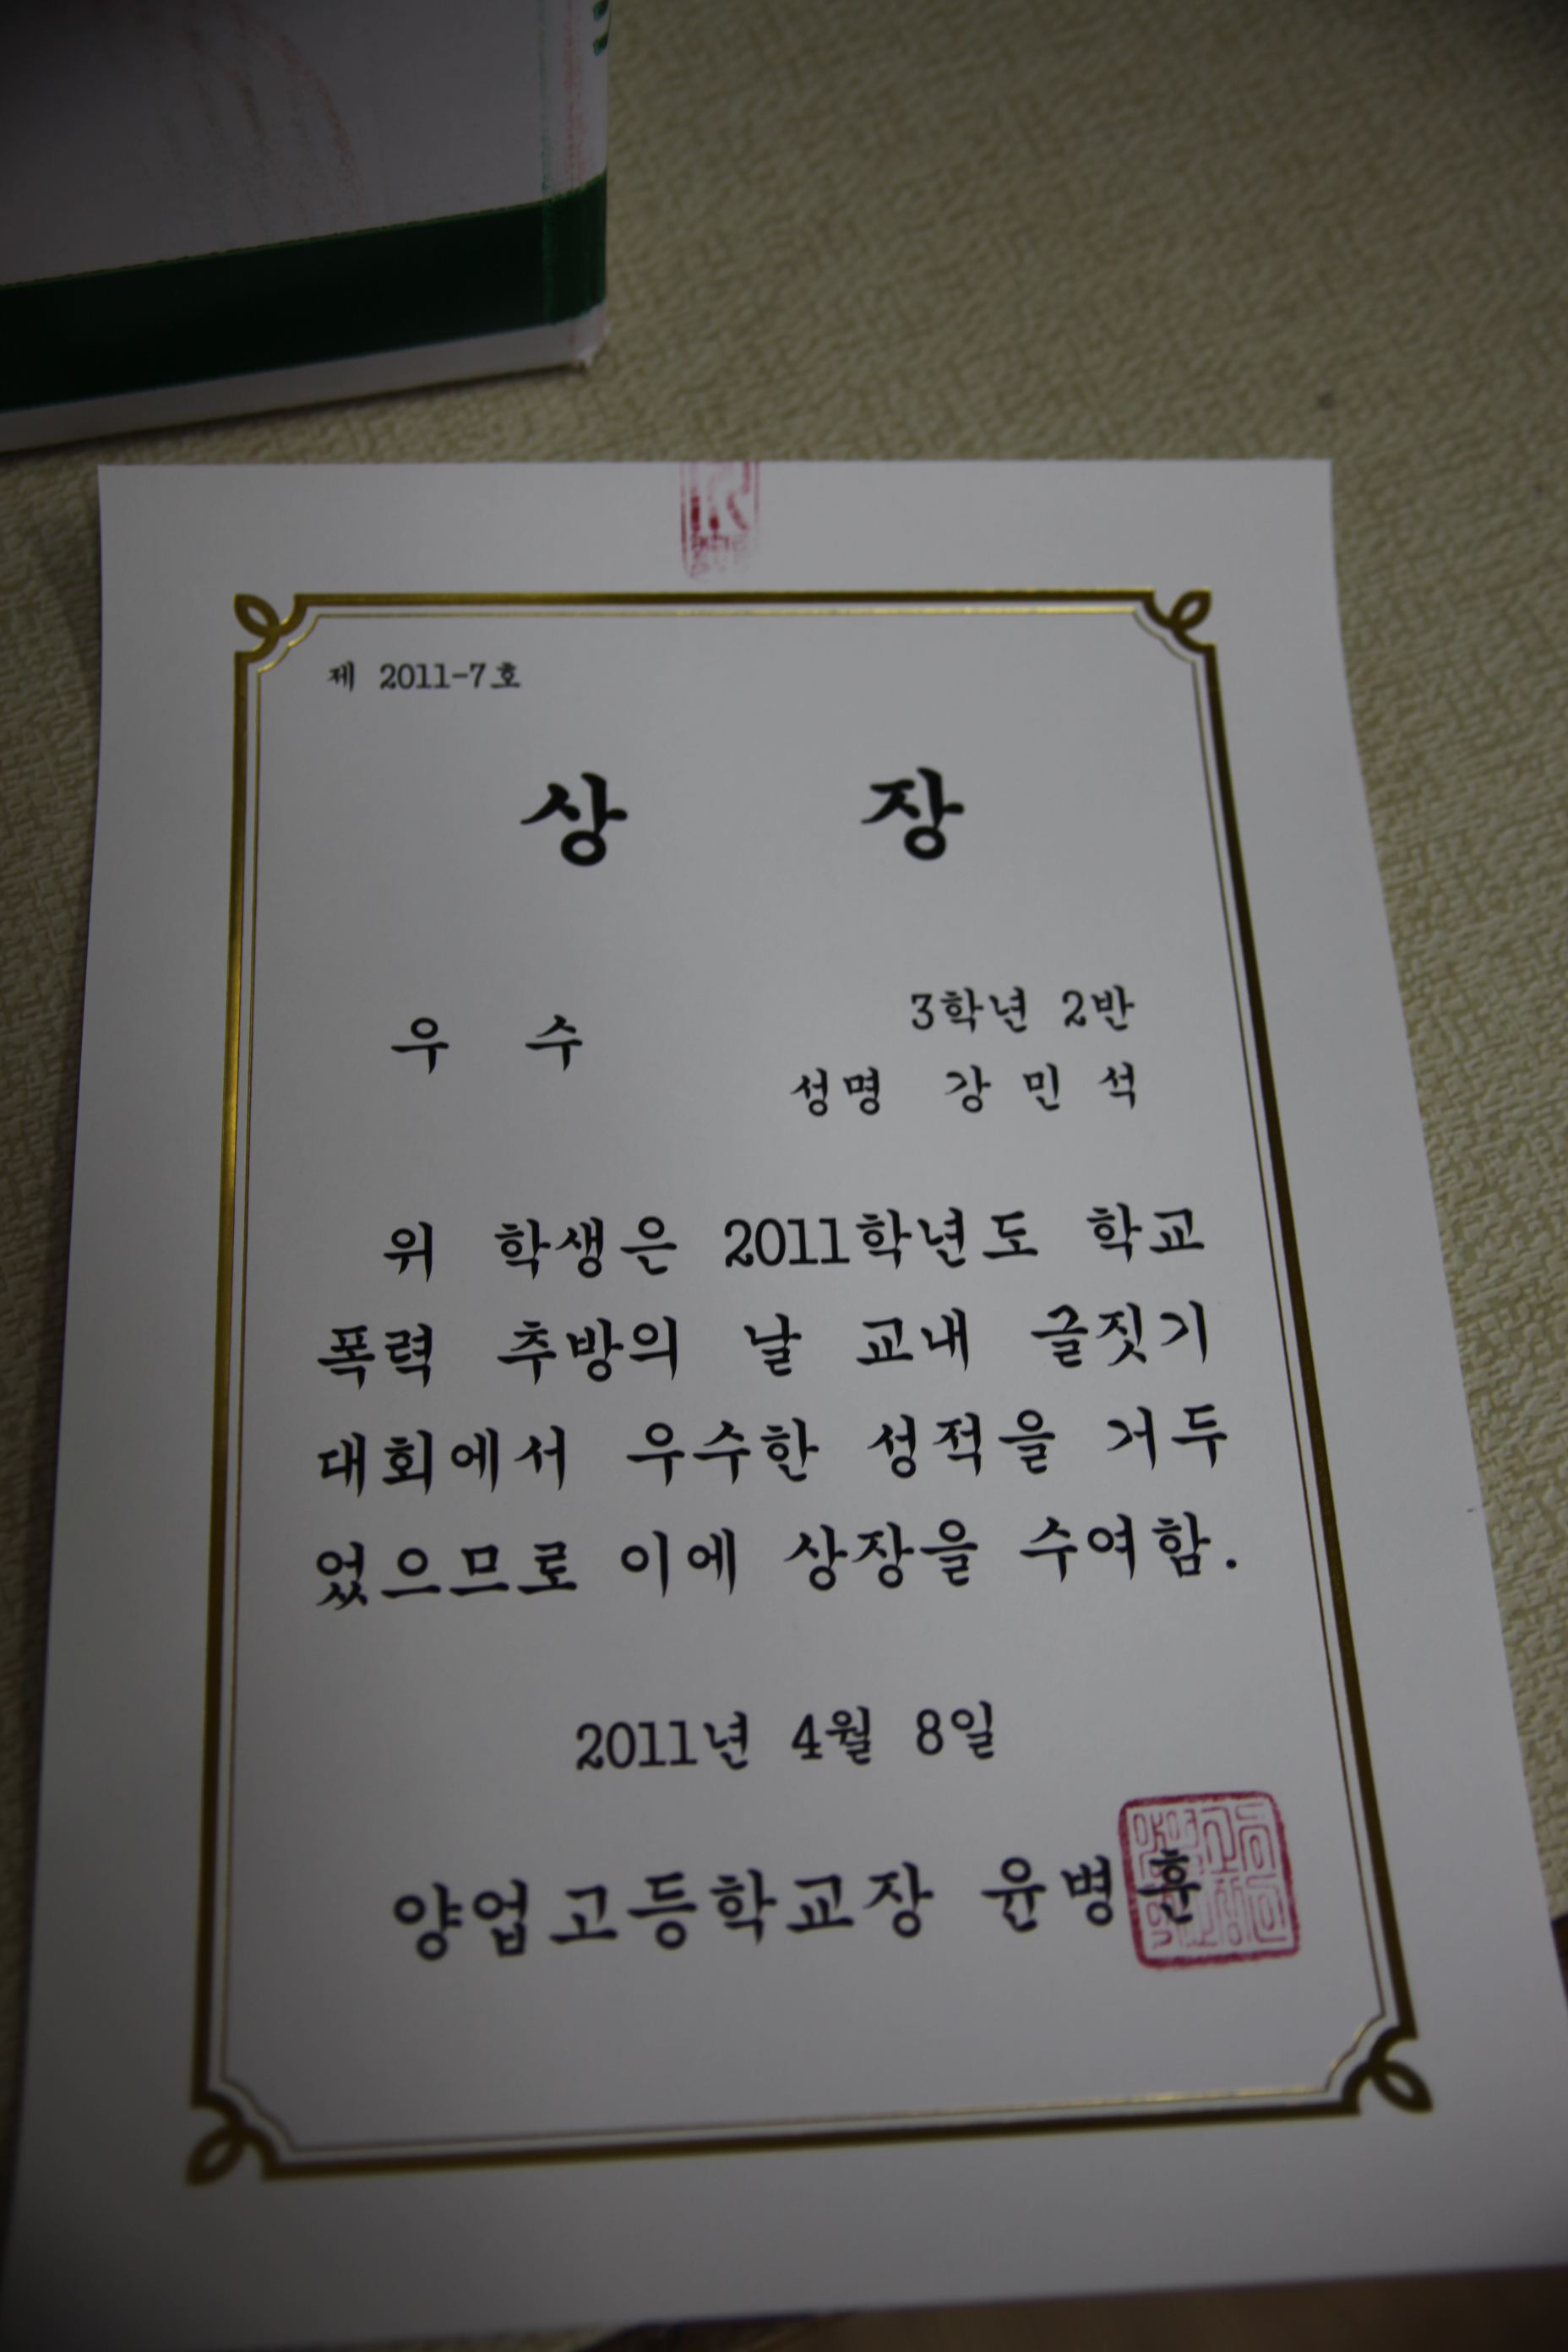 제 2011-7호
상 장
우 수
3학년 2반
성명 강 민 석
위 학생은 2011학년도 학교
폭력 추방의 날 교내 글짓기
대회에서 우수한 성적을 거두
었으므로 이에 상장을 수여함.
2011년 4월 8일
양업고등학교장 윤병훈